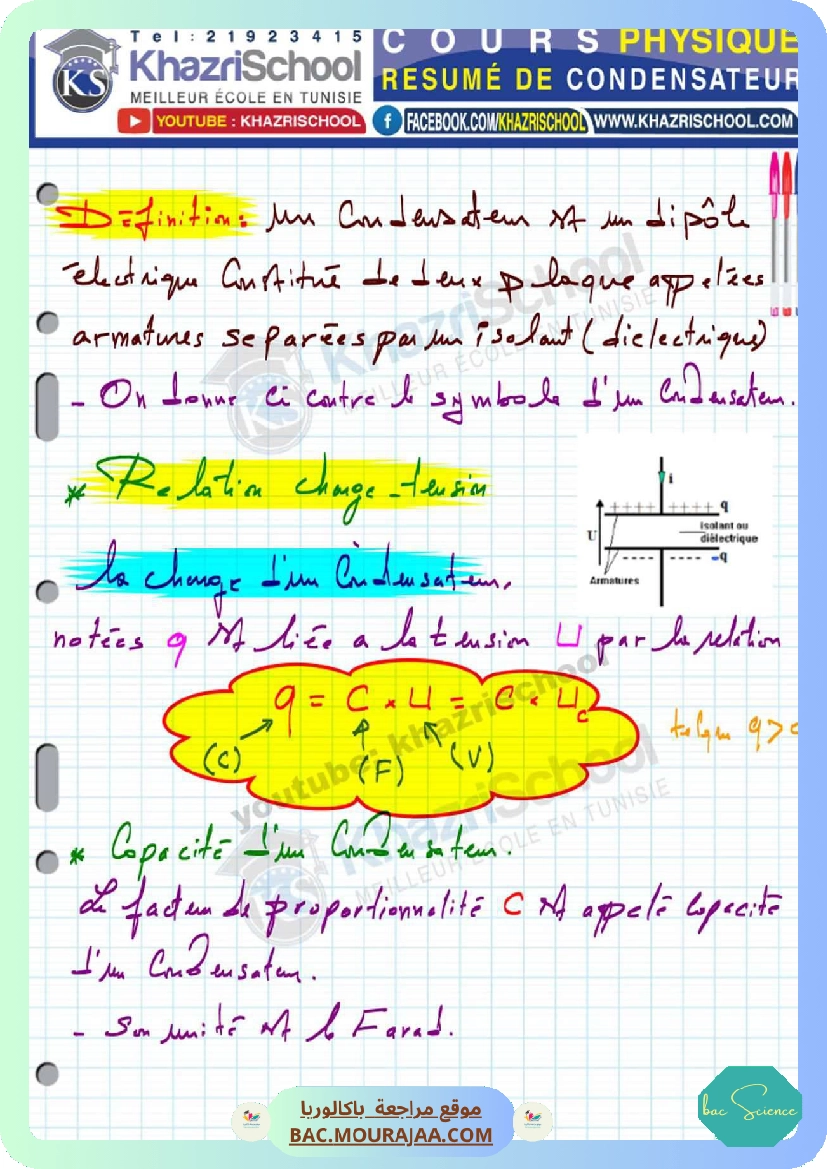 Tel: 21923415
KhazriSchool
MEILLEUR ÉCOLE EN TUNISIE
COURS PHYSIQUE
RESUMÉ DE CONDENSATEUR
YOUTUBE : KHAZRISCHOOL
FACEBOOK.COM/KHAZRISCHOOL
WWW.KHAZRISCHOOL.COM
Définition: Un Condensateur est un dipôle
électrique Constitué de deux plaque appelées
armatures separées par un isolant (dielectrique)
- On donne ci contre le symbole d'un Condensateur.
* Relation charge-tension
i
+ + + + + q
U
Isolant ou
diélectrique
- - - - - -q
Armatures
la charge d'un Condensateur,
notées q est liée a la tension U par la relation
q = C × U = C × Uc
(C) (F) (V)
q >
* Capacité d'un Condensateur.
Le facteur de proportionnalité C est appelé capacité
d'un Condensateur.
- Son unité est le Farad.
KhazriSchool
MEILLEUR ÉCOLE EN TUNISIE
youtube: khazrischool
KhazriSchool
MEILLEUR ÉCOLE EN TUNISIE
موقع مراجعة باكالوريا
BAC.MOURAJAA.COM
bac Science